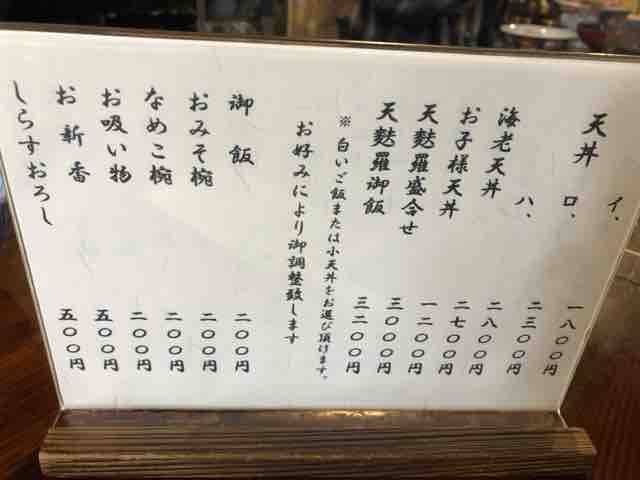 天丼 イ、 一八〇〇円
ロ、 二三〇〇円
ハ、 二八〇〇円
海老天丼 二七〇〇円
お子様天丼 一二〇〇円
天麩羅盛合せ 三〇〇〇円
天麩羅御飯 三二〇〇円
※ 白いご飯または小天丼をお選び頂けます。
お好みにより御調整致します
御飯 二〇〇円
おみそ椀 二〇〇円
なめこ椀 二〇〇円
お吸い物 二〇〇円
お新香 五〇〇円
しらすおろし 五〇〇円